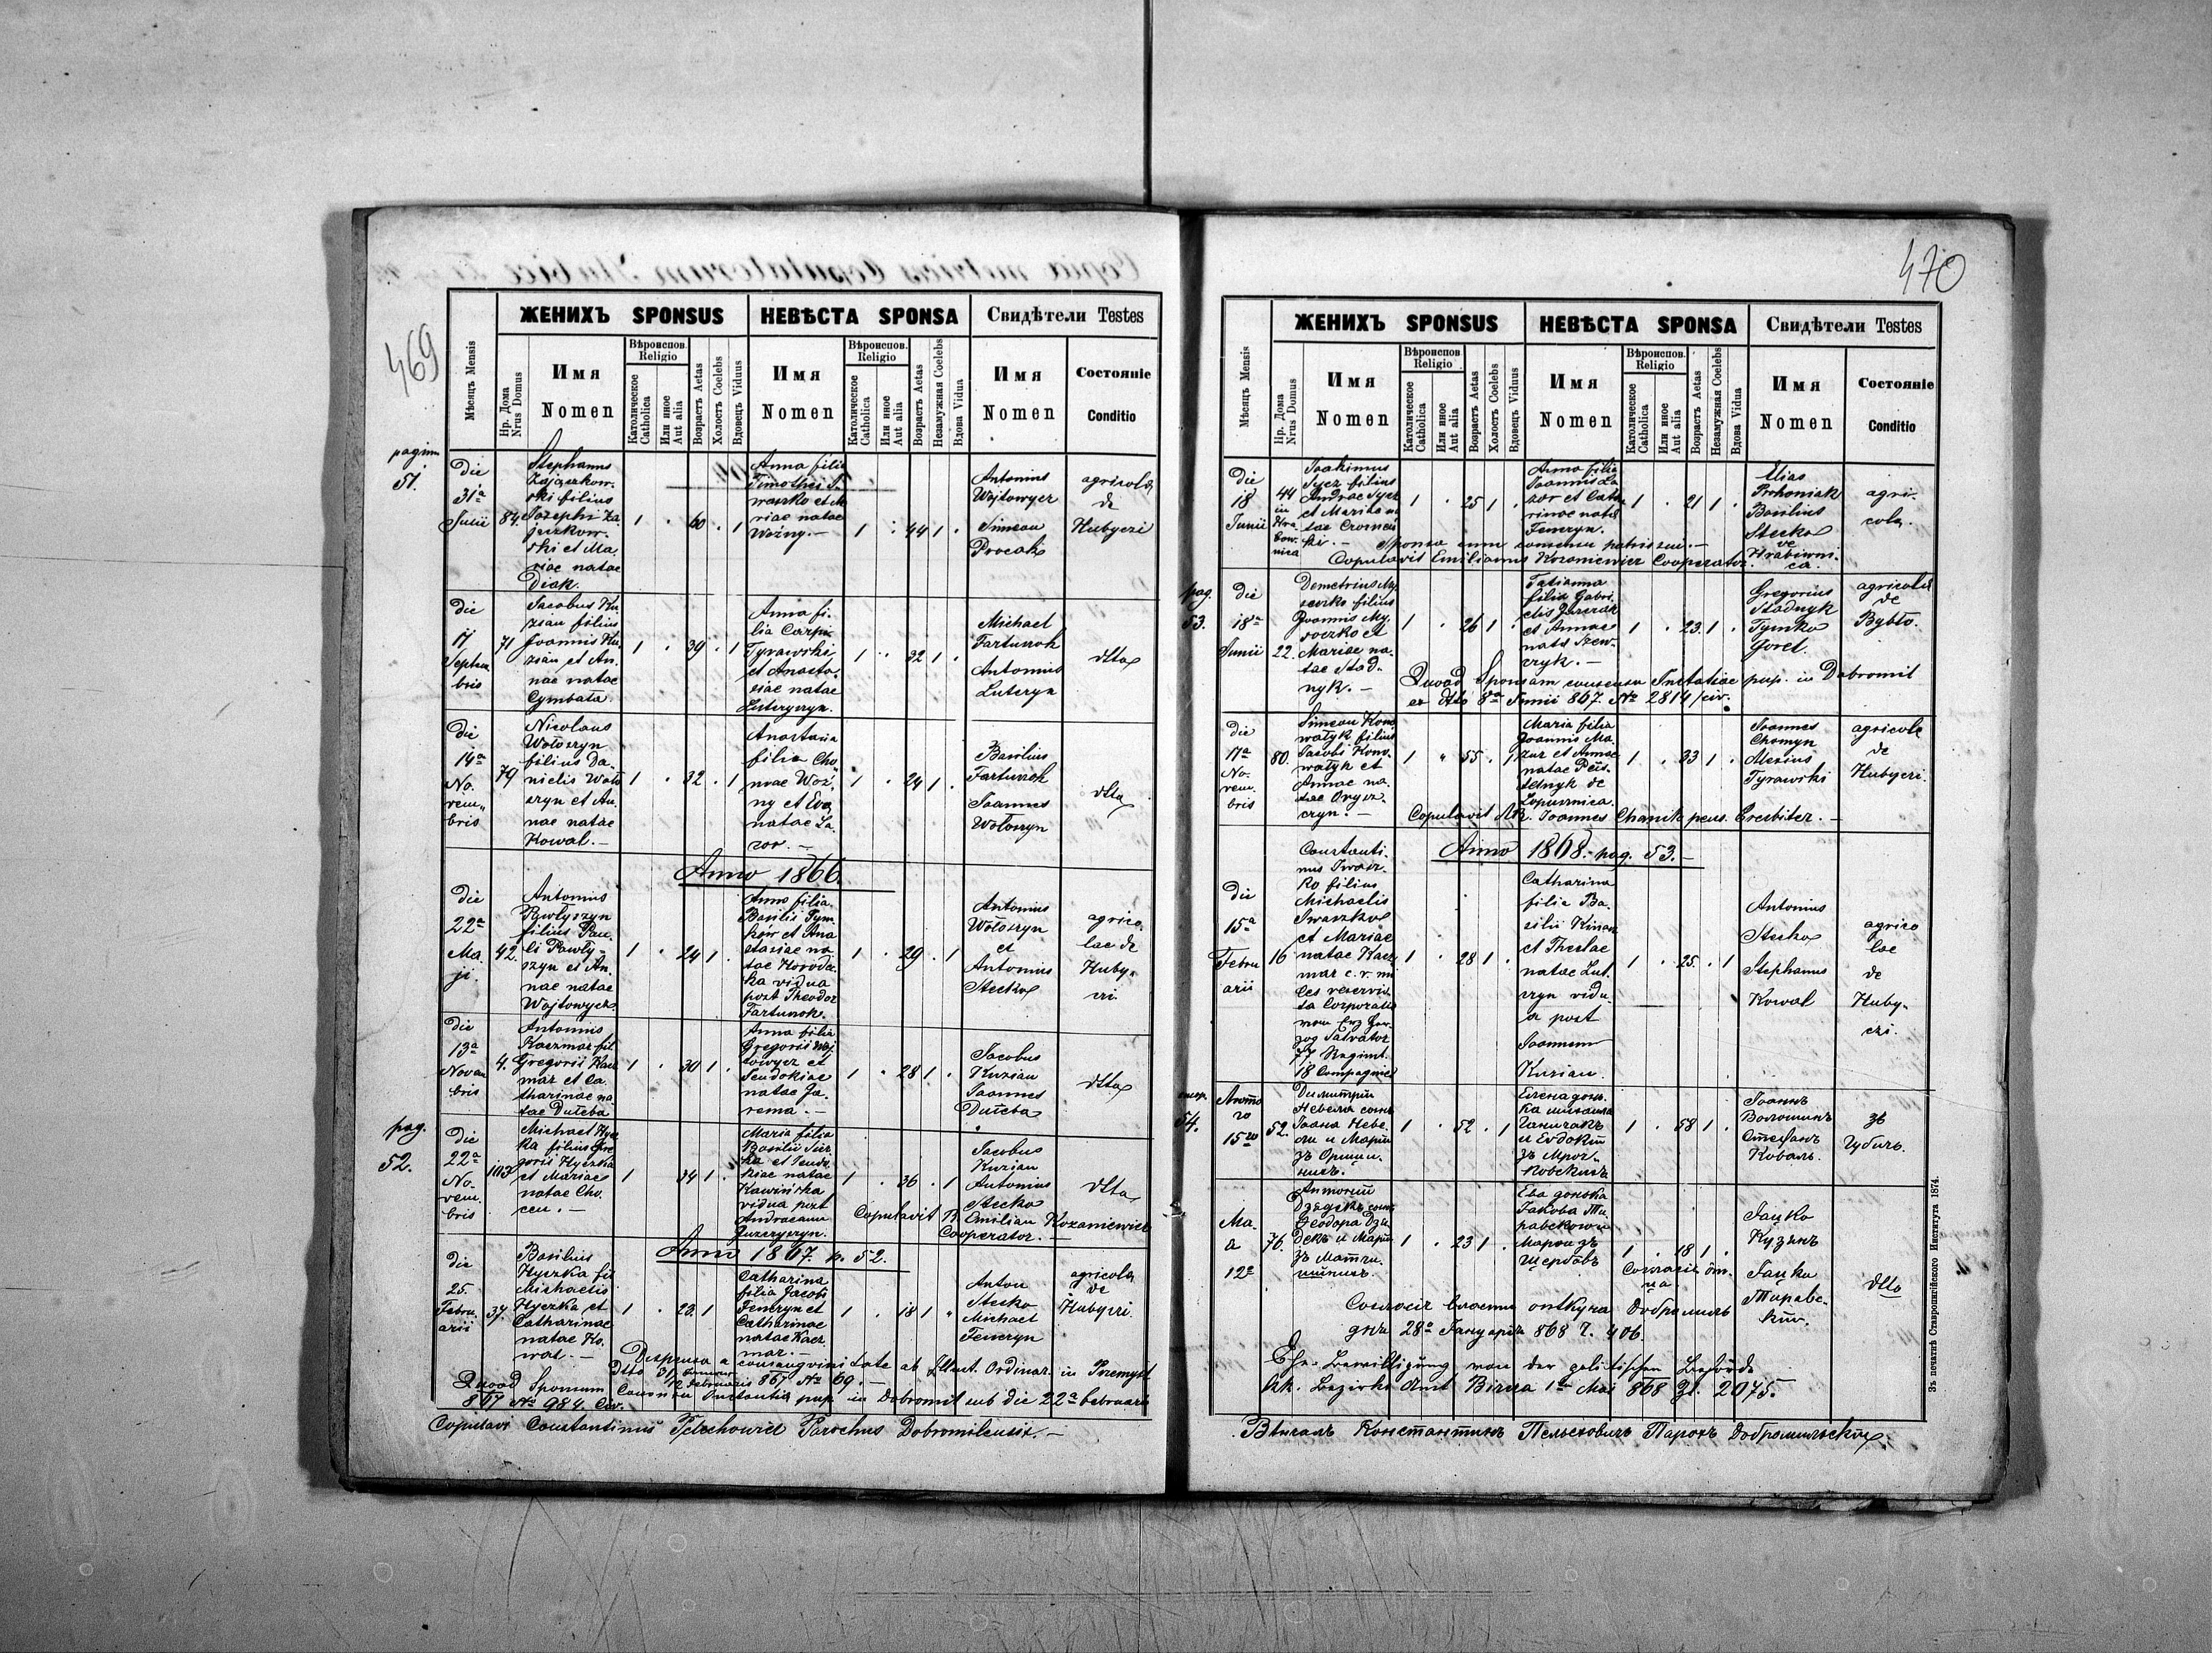 469
ЖЕНИХЪ SPONSUS
НЕВѢСТА SPONSA
Свидѣтели Testes
Мѣсяцъ Mensis
Нр. Дома
Nrus Domus
Имя
Nomen
Вѣроиспов.
Religio
Католическое
Catholica
Или иное
Aut alia
Возрастъ Aetas
Холостъ Coelebs
Вдовецъ Viduus
Имя
Nomen
Вѣроиспов.
Religio
Католическое
Catholica
Или иное
Aut alia
Возрастъ Aetas
Незамужная Coelebs
Вдова Vidua
Имя
Nomen
Состояніе
Conditio
pagina
51.
Die
31a
Julii
84.
Stephanus
Zajączkow-
ski filius
Josephi Za-
jączkow-
ski et Ma-
riae natae
Diak.
1 . 60 . 1
Anna filia
Timothei I-
waszko et Ma-
riae natae
Woźny.-
1 . 44 1 .
Antonius
Wojtowycz
Simeon
Procak
agricolae
de
Hubyczi
die
17
Septem
bris
71
Jacobus Ku-
zian filius
Joannis Ku-
zian et An-
nae natae
Cymbała.
1 . 39 . 1
Anna fi-
lia Carpi
Tyrawski
et Anasta-
siae natae
1 . 32 1 .
Michael
Fartuszok
Antonius
Luteryn
dtto
die
14a
No-
vem-
bris
79
Nicolaus
Wołoszyn
filius Da-
nielis Woło
szyn et An-
nae natae
Kowal.-
1 . 32 . 1
Anastasia
filia Cho-
mae Woź-
ny et Eva
natae La-
zor.-
1 . 24 1 .
Basilius
Fartuszok
Joannes
Wołoszyn
dtto
Anno 1866.
Die
22a
Ma-
ji.
42.
Antonius
Pawłyszyn
filius Pau-
li Pawły-
szyn et An-
nae natae
Wojtowycz
1 . 24 1 .
Anna filia
Basilii Tym-
ków et Ana
stasiae na-
tae Horodec-
ka vidua
post Theodor
Fartuszok.
1 . 29 . 1
Antonius
Wołoszyn
et
Antonius
Stecko
agrico
lae de
Huby-
czi.
Die
13a
Novem
bris
4.
Antonius
Kaczmar fil
Gregorii Kacz
mar et Ca-
tharinae na
tae Duteba
1 . 30 1 .
Anna filia
Gregorii Woj
towycz et
Eudokiae
natae Ja-
rema.-
1 . 28 1 .
Jacobus
Kuzian
Joannes
Duteba
dtto
pag.
52.
Die
22a
No-
vem-
bris
103
Michael Hycz
ka filius Gre
gorii Hyczka
et Mariae
natae Cho-
cen.-
1 34 1 .
Maria filia
Basilii Sier-
ka et Eudo-
kiae natae
Kawińska
vidua post
Andream
1 . 36 . 1
Copulavit R. Emilian Kozaniewicz
Cooperator.-
Jacobus
Kuzian
Antonius
Stecko
dtto
Anno 1867. p. 52.
Die
25.
Febru-
arii
37.
Basilius
Hyczka fil
Michaelis
Hyczka et
Catharinae
natae Ko-
wal.-
1 . 23. 1
Catharina
filia Jacobi
Fenczyn et
Catharinae
natae Kacz
mar.-
1 . 18 1 "
Anton
Stecko
Michael
Fenczyn
agricolae
de
Hubyczi.
Dispensa a consanguinitate ab Illust. Ordinar. in Przemysl
Dtto 31 Januar / 12 Februaris 867 No 69.-
Quoad Sponsum Consensu Instantia pup. in Dobromil sub die 22a februarii
867 No 984. Civ.
Copulavi Constantinus Petechowicz Parochus Dobromilensis.-
470
ЖЕНИХЪ SPONSUS
НЕВѢСТА SPONSA
Свидѣтели Testes
Мѣсяцъ Mensis
Нр. Дома
Nrus Domus
Имя
Nomen
Вѣроиспов.
Religio
Католическое
Catholica
Или иное
Aut alia
Возрастъ Aetas
Холостъ Coelebs
Вдовецъ Viduus
Имя
Nomen
Вѣроиспов.
Religio
Католическое
Catholica
Или иное
Aut alia
Возрастъ Aetas
Незамужная Coelebs
Вдова Vidua
Имя
Nomen
Состояніе
Conditio
Die
18
Junii
44
in
Hra-
bow-
nica
Joakimus
Sycz filius
Andrae Sycz
et Maria na
tae
1 . 25 1 .
Anna filia
Joannis La-
zor et Catha
rinae natae
Fenczyn.
1 . 21 1 .
Elias
Prohoniak
Basilius
Stecko
de
Hrabiwni-
ca.
agri-
cola.
Sponsa cum consensu patris sui.-
Copulavit Emilianus Kozaniewicz Cooperator.
pag.
53.
Die
18a
Junii
22.
Demetrius My-
soczko filius
Joannis My-
soczko et
Mariae na-
tae Stad-
nyk.-
1 . 26 1 .
Tatianna
filia Gabri-
elis
et Annae
nata Szew-
czyk.-
1 . 23. 1 .
Gregorius
Stadnyk
Tymko
Gorel.
agricolae
de
Bybło.
Quoad Sponsam consensu Instatiae pup. in Dobromil
ex dtto 8a Junii 867. No 2814/civ.
Die
17a
No-
vem-
bris
80.
Simeon Kono
watyk filius
Jacobi Kono-
watyk et
Annae na-
tae
1 " 55 . 1
Maria filia
Joannis Ma-
zur et Annae
natae
de
Łopusznica.
1 . 33 1 .
Joannes
Chomyn
Alexius
Tyrawski
agricolae
de
Hubyczi.
Copulavit AR. Joannes Chanik pens. Presbiter.-
Anno 1868.- pag. 53.-
Die
15a
Febru
arii
16
Constanti-
nus Iwasz-
ko filius
Michaelis
Iwaszko
et Mariae
natae Kacz
mar c. r. mi
les reservis
ta Corporalis
von Erz Her-
zog Salvator
77 Regimt.
18 Compagnie
1 . 28 1 .
Catharina
filia Ba-
silii Kinasz
et Theclae
natae Lut-
czyn vidu-
a post
Joannem
Kuzian.
1 . 25. . 1
Antonius
Stecko
Stephanus
Kowal
agrico
lae
de
Huby-
czi.
54.
Люто
го
15го
52.
Димитрій
Невела сынъ
Іоана Неве-
ли и Маріи
зъ
1 . 52 . 1
Еленa донь-
ка михаила
и Евдокіи
зъ Мроч-
ковскихъ
1 . 58 1 .
Іоаннъ
Волошинъ
Стефанъ
Коваль.
зъ
Губичъ.
Ма-
а
12е
76.
Антоній
сынъ
Феодора
и Маріи
зъ
1 . 23 1 .
Ева донька
Іакова Ти-
равскогои
зъ
1 . 18 1 .
Яцко
Кузянъ
Яцко
Тиравс-
кій.
dtto
дня 28о Януарія 868 Ч. 406.
Ehe-Bewilligung von der politischen Behörde
kk. Bezirks Amt Bircza 1te Mai 868 Zl. 2075.
Вѣнчалъ Константинъ Пелеховичъ Парохъ Добромильскій.
Зъ печатнѣ Ставропигійского Института 1874.